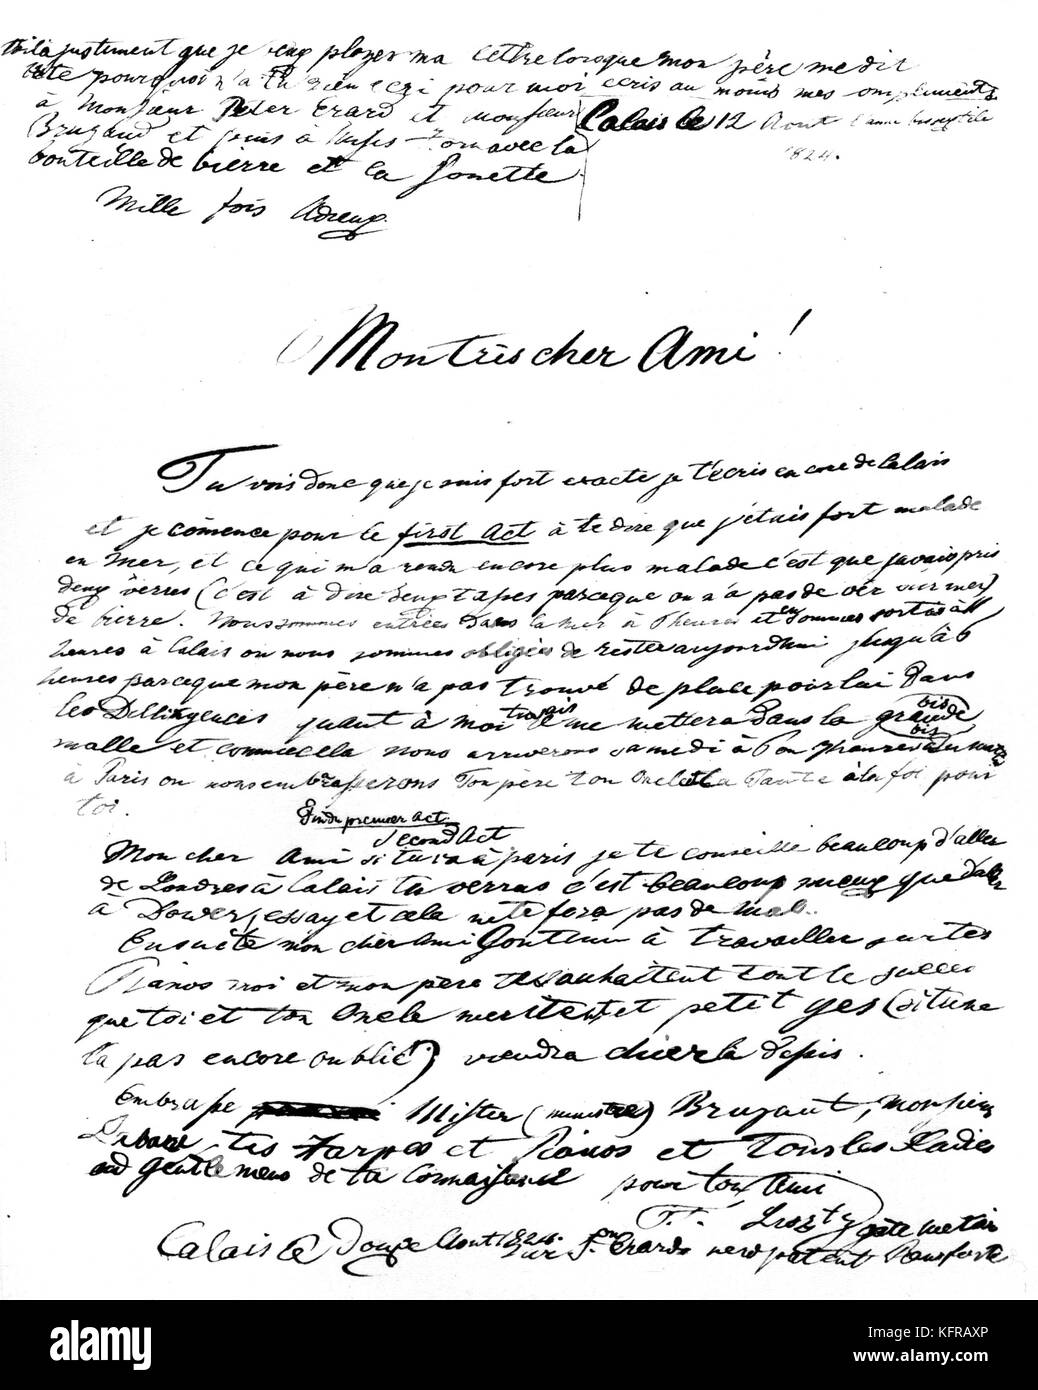 Voilà justement que je veux ployer ma lettre lorsque mon père me dit
pourquoi n'a tu rien pour moi ecris au moins mes compliments
à Monsieur Peter Erard et Monsieur
Calais le 12 Aout l'anné bissextile
1824.
et puis à avec la
bouteille de bierre et la Sonette
Mille fois Adieux.
Mon très cher Ami!
Tu vois donc que je suis fort exacte je t'écris encore de Calais
et je cómence pour le first Act à te dire que j'étais fort malade
en Mer, et ce qui m'a rendu encore plus malade c'est que j'avais pris
deux verres (c'est à dire deux tapes parceque on n'a pas de sur mer)
de bierre. Nous sommes entrées dans la Mer à heures et en sommes sortis à
heures à Calais ou nous sommes obligés de rester aujourdhui jusqu'à 6
heures parceque mon père n'a pas trouvé de place pour lui dans
les Dilligences quant à moi je me mettera dans la grande
bis
bis
malle et comme cela nous arriverons samedi à 6 ou 7 heures du
à Paris ou nous embrasserons Ton père ton Oncle et la Tante à la foi pour
toi.
Fin du premier Act.
Second Act
Mon cher Ami si tu va à paris je te conseille beaucoup d'aller
de Londres à Calais tu verras c'est beaucoup mieux que d'aller
à Dower j'essay et cela ne te fera pas de mal.
Ensuite mon cher Ami Continu à travailler sur tes
Pianos moi et mon père te souhaitent tout le succes
que toi et ton Oncle meritent, et petit yes (si tu ne
la pas encore oublié) viendra chierla depis.
Embrasse Mister (ministre) Brugant, monsieur
tes Harpes et Pianos et Tous les Ladies
and gentlemens de ta Connaissance pour ton Ami
F. Liszt
Calais le Douze Aout 1824. sur Erards new patent Pianoforte
alamy
Image ID: KFRAXP
www.alamy.com